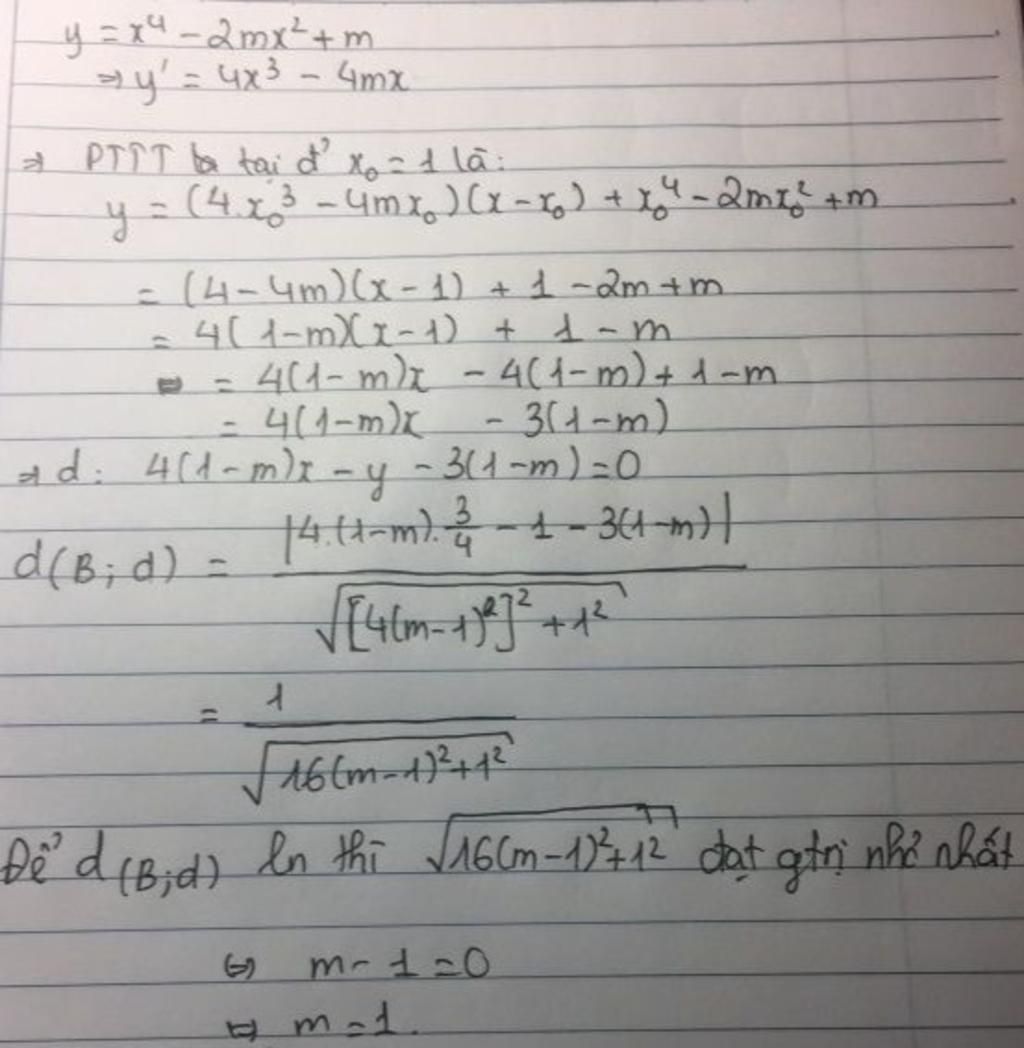 y = x⁴ - 2mx² + m
⇒ y' = 4x³ - 4mx
⇒ PTTT tại đ' x₀ = 1 là:
y = (4.x₀³ - 4mx₀)(x - x₀) + x₀⁴ - 2mx₀² + m
= (4 - 4m)(x - 1) + 1 - 2m + m
= 4(1 - m)(x - 1) + 1 - m
= 4(1 - m)x - 4(1 - m) + 1 - m
= 4(1 - m)x - 3(1 - m)
⇒ d: 4(1 - m)x - y - 3(1 - m) = 0
d(B; d) = |4.(1 - m).3/4 - 1 - 3(1 - m)| / √([4(m - 1)²]² + 1²)
= 1 / √(16(m - 1)² + 1²)
Để d(B;d) ln thì √(16(m - 1)² + 1²) đạt gtrị nhỏ nhất
⇔ m - 1 = 0
⇔ m = 1.